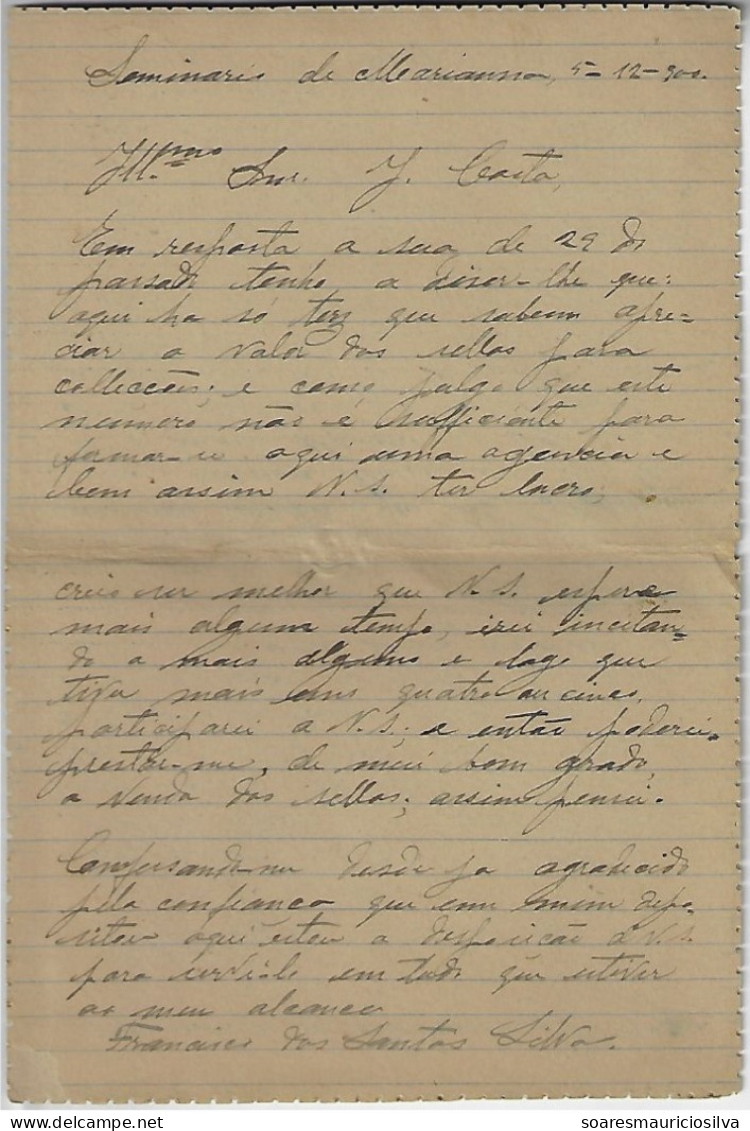 Seminario de Marianna, 5-12-900.
Ill.mo Snr. J. Costa,
Em resposta a sua de 29 do
passado tenho a diser-lhe que:
aqui ha só tres que sabem apre-
ciar o valor dos sellos para
collecções; e como julgo que este
numero não é sufficiente para
formar-se aqui uma agencia e
bem assim V.S. ter lucro,
creio ser melhor que V.S. espere
mais algum tempo, irei incitan-
do a mais alguns e logo que
tiver mais uns quatro ou cinco,
participarei a V.S.; e então poderei
prestar-me, de meu bom grado,
a venda dos sellos; assim pensei.
Confessando-me desde ja agradecido
pela confiança que em mim depo-
sitou aqui estou a disposição de V.S.
para servil-o em tudo que estiver
ao meu alcance
Francisco dos Santos Silva.
soaresmauriciosilva